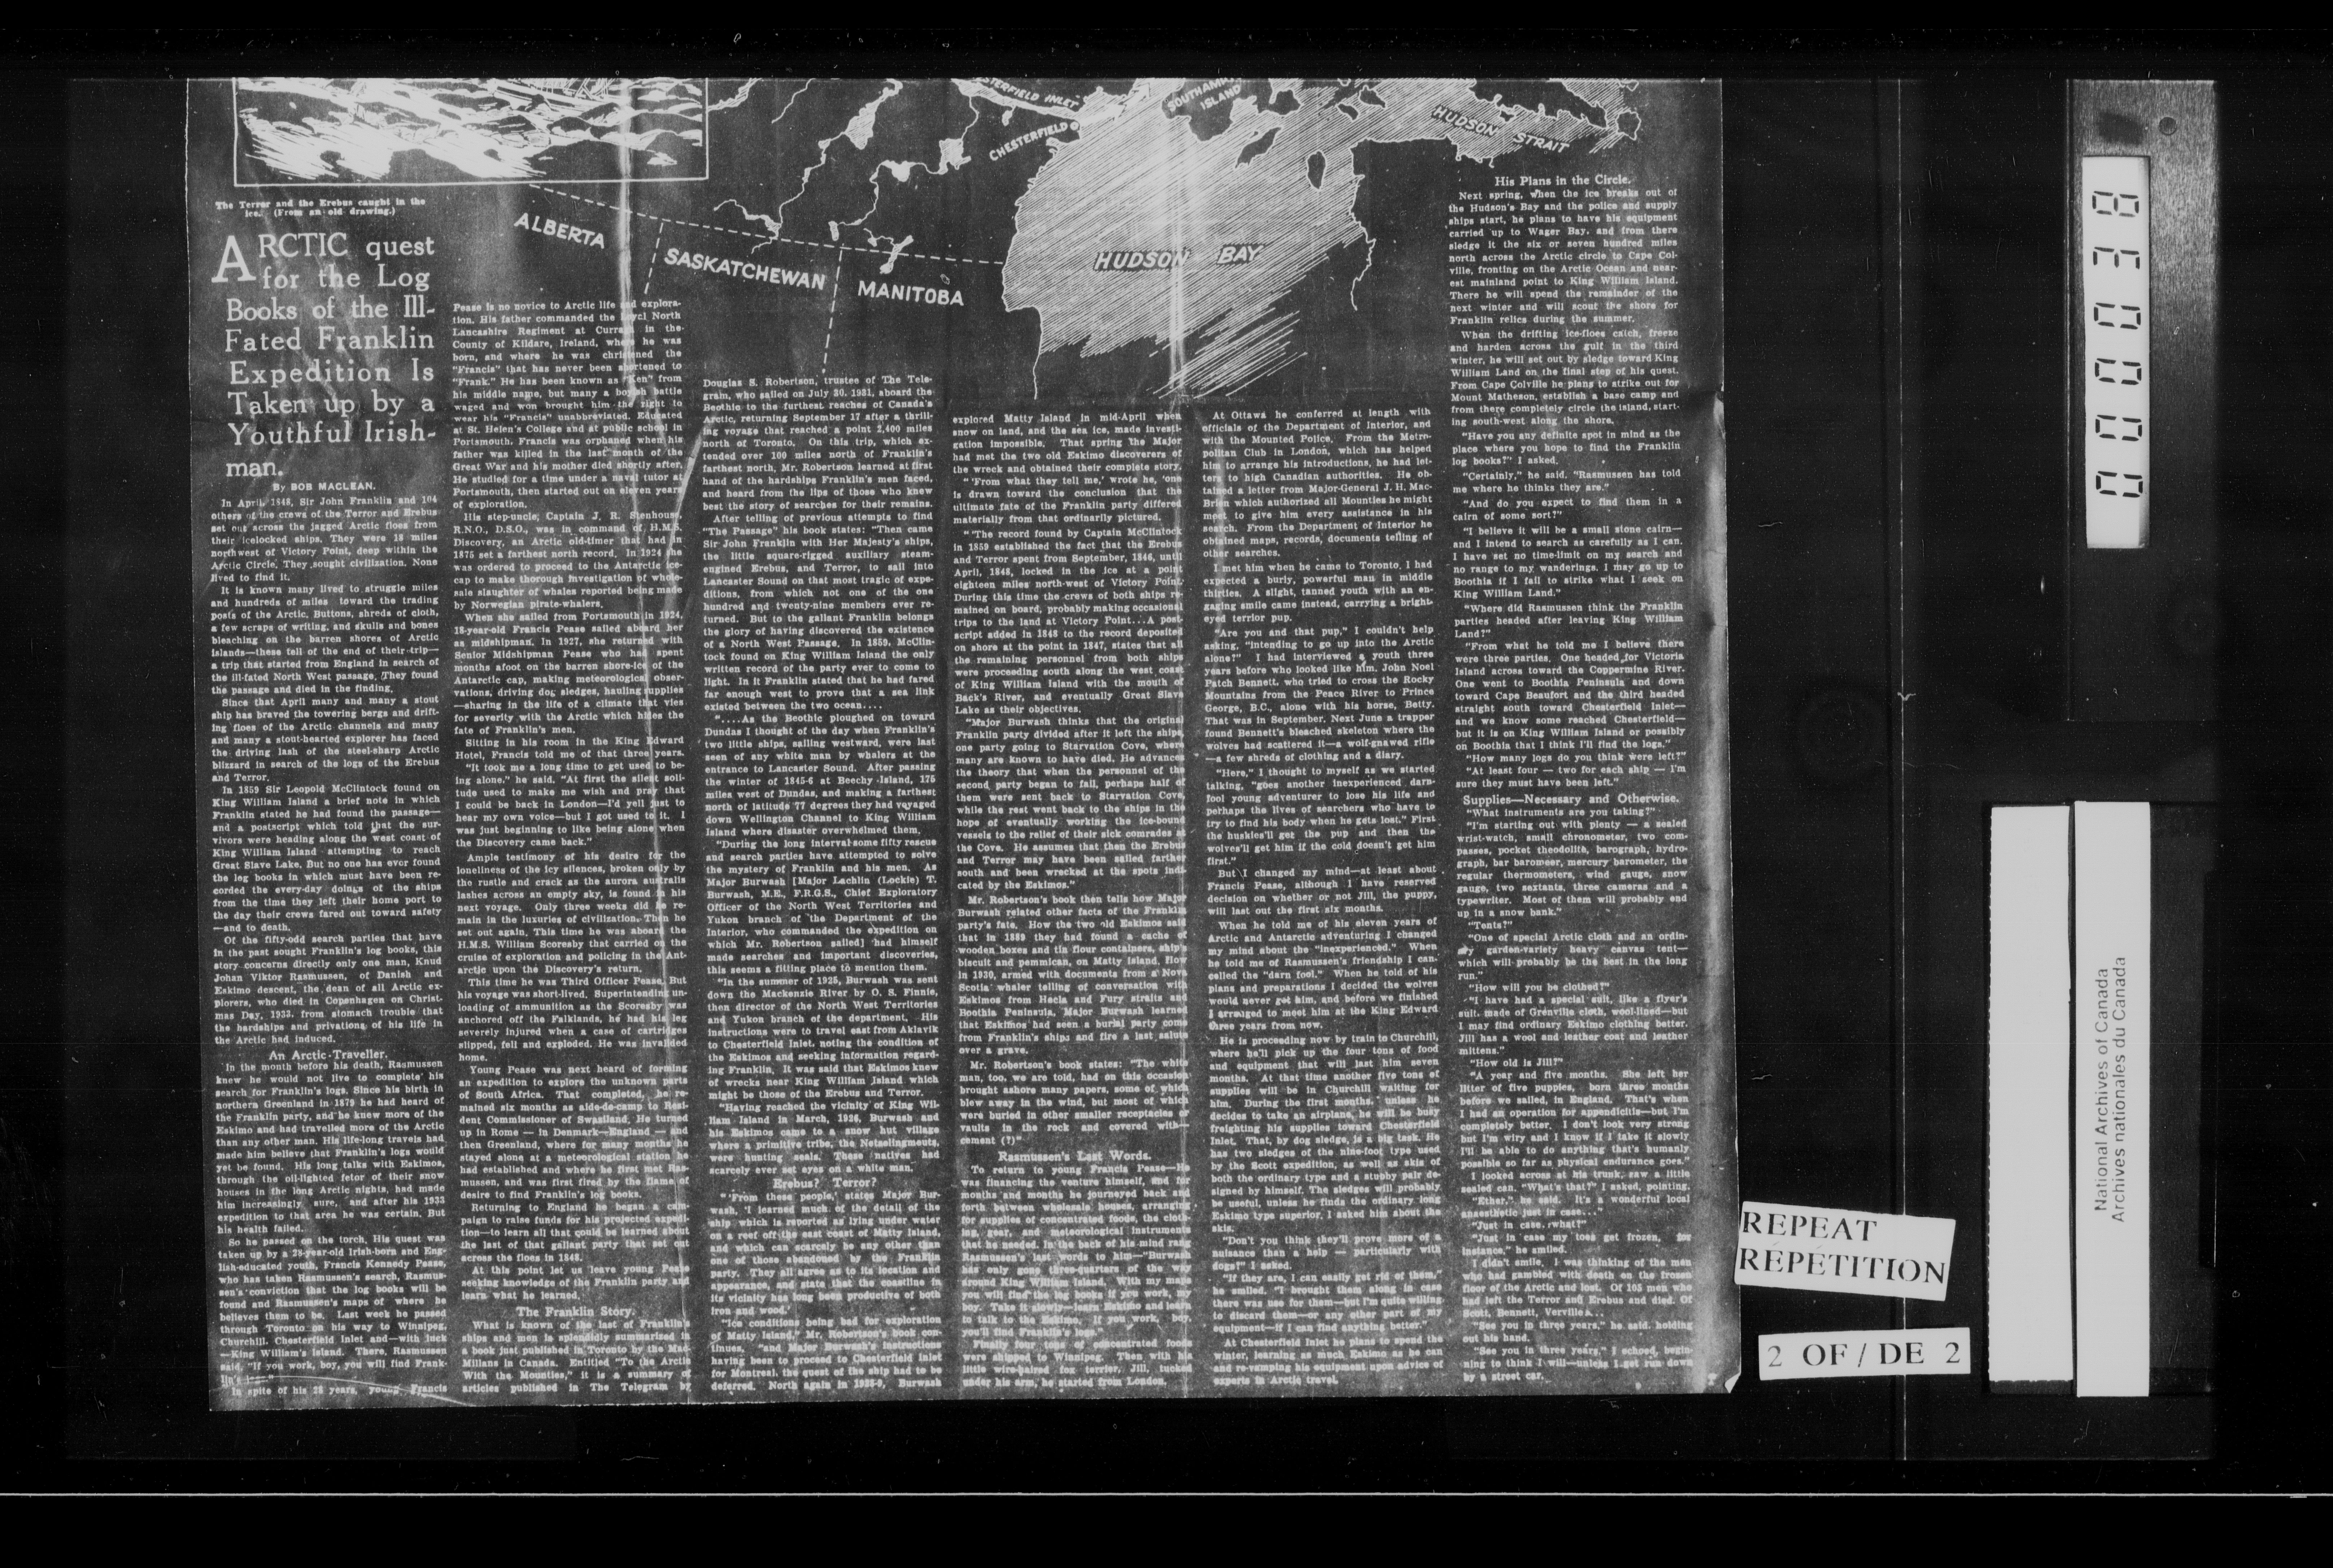 STERFIELD INLET
CHESTERFIELD
SOUTHAMP
ISLAND
HUDSON STRAIT
ALBERTA
SASKATCHEWAN
MANITOBA
HUDSON BAY
The Terror and the Erebus caught in the
ice. (From an old drawing.)
ARCTIC quest
for the Log
Books of the Ill-
Fated Franklin
Expedition Is
Taken up by a
Youthful Irish-
man.
By BOB MACLEAN.
In April, 1848, Sir John Franklin and 104
others of the crews of the Terror and Erebus
set out across the jagged Arctic floes from
their icelocked ships. They were 18 miles
northwest of Victory Point, deep within the
Arctic Circle. They sought civilization. None
lived to find it.
It is known many lived to struggle miles
and hundreds of miles toward the trading
posts of the Arctic. Buttons, shreds of cloth,
a few scraps of writing, and skulls and bones
bleaching on the barren shores of Arctic
islands—these tell of the end of their trip—
a trip that started from England in search of
the ill-fated North West passage. They found
the passage and died in the finding.
Since that April many and many a stout
ship has braved the towering bergs and drift-
ing floes of the Arctic channels and many
and many a stout-hearted explorer has faced
the driving lash of the steel-sharp Arctic
blizzard in search of the logs of the Erebus
and Terror.
In 1859 Sir Leopold McClintock found on
King William Island a brief note in which
Franklin stated he had found the passage—
and a postscript which told that the sur-
vivors were heading along the west coast of
King William Island attempting to reach
Great Slave Lake. But no one has ever found
the log books in which must have been re-
corded the every-day doings of the ships
from the time they left their home port to
the day their crews fared out toward safety
—and to death.
Of the fifty-odd search parties that have
in the past sought Franklin's log books, this
story concerns directly only one man, Knud
Johan Viktor Rasmussen, of Danish and
Eskimo descent, the dean of all Arctic ex-
plorers, who died in Copenhagen on Christ-
mas Day, 1933, from stomach trouble that
the hardships and privations of his life in
the Arctic had induced.
An Arctic Traveller.
In the month before his death, Rasmussen
knew he would not live to complete his
search for Franklin's logs. Since his birth in
northern Greenland in 1879 he had heard of
the Franklin party, and he knew more of the
Eskimo and had travelled more of the Arctic
than any other man. His life-long travels had
made him believe that Franklin's logs would
yet be found. His long talks with Eskimos,
through the oil-lighted fetor of their snow
houses in the long Arctic nights, had made
him increasingly sure, and after his 1933
expedition to that area he was certain. But
his health failed.
So he passed on the torch. His quest was
taken up by a 28-year-old Irish-born and Eng-
lish-educated youth, Francis Kennedy Pease,
who has taken Rasmussen's search, Rasmus-
sen's conviction that the log books will be
found and Rasmussen's maps of where he
believes them to be. Last week he passed
through Toronto on his way to Winnipeg,
Churchill, Chesterfield Inlet and—with luck
—King William's Island. There, Rasmussen
said, "If you work, boy, you will find Frank-
lin's
In spite of his 28 years, young Francis
Pease is no novice to Arctic life and explora-
tion. His father commanded the Loyal North
Lancashire Regiment at Curragh in the
County of Kildare, Ireland, where he was
born, and where he was christened the
"Francis" that has never been shortened to
"Frank." He has been known as "Ken" from
his middle name, but many a boyish battle
waged and won brought him the right to
wear his "Francis" unabbreviated. Educated
at St. Helen's College and at public school in
Portsmouth, Francis was orphaned when his
father was killed in the last month of the
Great War and his mother died shortly after.
He studied for a time under a naval tutor at
Portsmouth, then started out on eleven years
of exploration.
His step-uncle, Captain J. R. Stenhouse,
R.N.O., D.S.O., was in command of H.M.S.
Discovery, an Arctic old-timer that had in
1875 set a farthest north record. In 1924 she
was ordered to proceed to the Antarctic ice-
cap to make thorough investigation of whole-
sale slaughter of whales reported being made
by Norwegian pirate-whalers.
When she sailed from Portsmouth in 1924,
18-year-old Francis Pease sailed aboard her
as midshipman. In 1927, she returned with
Senior Midshipman Pease who had spent
months afoot on the barren shore-ice of the
Antarctic cap, making meteorological obser-
vations, driving dog sledges, hauling supplies
—sharing in the life of a climate that vies
for severity with the Arctic which hides the
fate of Franklin's men.
Sitting in his room in the King Edward
Hotel, Francis told me of that three years.
"It took me a long time to get used to be-
ing alone," he said. "At first the silent soli-
tude used to make me wish and pray that
I could be back in London—I'd yell just to
hear my own voice—but I got used to it. I
was just beginning to like being alone when
the Discovery came back."
Ample testimony of his desire for the
loneliness of the icy silences, broken only by
the rustle and crack as the aurora australis
lashes across an empty sky, is found in his
next voyage. Only three weeks did he re-
main in the luxuries of civilization. Then he
set out again. This time he was aboard the
H.M.S. William Scoresby that carried on the
cruise of exploration and policing in the Ant-
arctic upon the Discovery's return.
This time he was Third Officer Pease. But
his voyage was short-lived. Superintending un-
loading of ammunition as the Scoresby was
anchored off the Falklands, he had his leg
severely injured when a case of cartridges
slipped, fell and exploded. He was invalided
home.
Young Pease was next heard of forming
an expedition to explore the unknown parts
of South Africa. That completed, he re-
mained six months as aide-de-camp to Resi-
dent Commissioner of Swaziland. He turned
up in Rome — in Denmark—England — and
then Greenland, where for many months he
stayed alone at a meteorological station he
had established and where he first met Ras-
mussen, and was first fired by the flame of
desire to find Franklin's log books.
Returning to England he began a cam-
paign to raise funds for his projected expedi-
tion—to learn all that could be learned about
the last of that gallant party that set out
across the floes in 1848.
At this point let us leave young Pease
seeking knowledge of the Franklin party and
learn what he learned.
The Franklin Story.
What is known of the last of Franklin's
ships and men is splendidly summarized in
a book just published in Toronto by the Mac-
Millans in Canada. Entitled "To the Arctic
With the Mounties," it is a summary of
articles published in The Telegram by
Douglas S. Robertson, trustee of The Tele-
gram, who sailed on July 30, 1931, aboard the
Beothic to the furthest reaches of Canada's
Arctic, returning September 17 after a thrill-
ing voyage that reached a point 2,400 miles
north of Toronto. On this trip, which ex-
tended over 100 miles north of Franklin's
farthest north, Mr. Robertson learned at first
hand of the hardships Franklin's men faced,
and heard from the lips of those who knew
best the story of searches for their remains.
After telling of previous attempts to find
"The Passage" his book states: "Then came
Sir John Franklin with Her Majesty's ships,
the little square-rigged auxiliary steam-
engined Erebus, and Terror, to sail into
Lancaster Sound on that most tragic of expe-
ditions, from which not one of the one
hundred and twenty-nine members ever re-
turned. But to the gallant Franklin belongs
the glory of having discovered the existence
of a North West Passage. In 1859, McClin-
tock found on King William Island the only
written record of the party ever to come to
light. In it Franklin stated that he had fared
far enough west to prove that a sea link
existed between the two ocean....
"....As the Beothic ploughed on toward
Dundas I thought of the day when Franklin's
two little ships, sailing westward, were last
seen of any white man by whalers at the
entrance to Lancaster Sound. After passing
the winter of 1845-6 at Beechy Island, 175
miles west of Dundas, and making a farthest
north of latitude 77 degrees they had voyaged
down Wellington Channel to King William
Island where disaster overwhelmed them.
"During the long interval some fifty rescue
and search parties have attempted to solve
the mystery of Franklin and his men. As
Major Burwash [Major Lachlin (Lockie) T.
Burwash, M.E., F.R.G.S., Chief Exploratory
Officer of the North West Territories and
Yukon branch of the Department of the
Interior, who commanded the expedition on
which Mr. Robertson sailed] had himself
made searches and important discoveries,
this seems a fitting place to mention them.
"In the summer of 1925, Burwash was sent
down the Mackenzie River by O. S. Finnie,
then director of the North West Territories
and Yukon branch of the department. His
instructions were to travel east from Aklavik
to Chesterfield Inlet, noting the condition of
the Eskimos and seeking information regard-
ing Franklin. It was said that Eskimos knew
of wrecks near King William Island which
might be those of the Erebus and Terror.
"Having reached the vicinity of King Wil-
liam Island in March, 1926, Burwash and
his Eskimos came to a snow hut village
where a primitive tribe, the Netselingmeuts,
were hunting seals. These natives had
scarcely ever set eyes on a white man.
Erebus? Terror?
"'From these people,' states Major Bur-
wash, 'I learned much of the detail of the
ship which is reported as lying under water
on a reef off the east coast of Matty Island,
and which can scarcely be any other than
one of those abandoned by the Franklin
party. They all agree as to its location and
appearance, and state that the coastline in
its vicinity has long been productive of both
iron and wood.'
"Ice conditions being bad for exploration
of Matty Island," Mr. Robertson's book con-
tinues, "and Major Burwash's instructions
having been to proceed to Chesterfield Inlet
for Montreal, the quest of the ship had to be
deferred. North again in 1928-9, Burwash
explored Matty Island in mid-April when
snow on land, and the sea ice, made investi-
gation impossible. That spring the Major
had met the two old Eskimo discoverers of
the wreck and obtained their complete story.
"'From what they tell me,' wrote he, 'one
is drawn toward the conclusion that the
ultimate fate of the Franklin party differed
materially from that ordinarily pictured.
"'The record found by Captain McClintock
in 1859 established the fact that the Erebus
and Terror spent from September, 1846, until
April, 1848, locked in the ice at a point
eighteen miles north-west of Victory Point.
During this time the crews of both ships re-
mained on board, probably making occasional
trips to the land at Victory Point...A post-
script added in 1848 to the record deposited
on shore at the point in 1847, states that all
the remaining personnel from both ships
were proceeding south along the west coast
of King William Island with the mouth of
Back's River, and eventually Great Slave
Lake as their objectives.
"Major Burwash thinks that the original
Franklin party divided after it left the ships,
one party going to Starvation Cove, where
many are known to have died. He advances
the theory that when the personnel of the
second party began to fail, perhaps half of
them were sent back to Starvation Cove,
while the rest went back to the ships in the
hope of eventually working the ice-bound
vessels to the relief of their sick comrades at
the Cove. He assumes that then the Erebus
and Terror may have been sailed farther
south and been wrecked at the spots indi-
cated by the Eskimos."
Mr. Robertson's book then tells how Major
Burwash related other facts of the Franklin
party's fate. How the two old Eskimos said
that in 1889 they had found a cache of
wooden boxes and tin flour containers, ship's
biscuit and pemmican, on Matty Island. How
in 1930, armed with documents from a Nova
Scotia whaler telling of conversation with
Eskimos from Hecla and Fury straits and
Boothia Peninsula, Major Burwash learned
that Eskimos had seen a burial party come
from Franklin's ships and fire a last salute
over a grave.
Mr. Robertson's book states: "The white
man, too, we are told, had on this occasion
brought ashore many papers, some of which
blew away in the wind, but most of which
were buried in other smaller receptacles or
vaults in the rock and covered with—
cement (?)"
Rasmussen's Last Words.
To return to young Francis Pease—He
was financing the venture himself, and for
months and months he journeyed back and
forth between wholesale houses, arranging
for supplies of concentrated foods, the cloth-
ing, gear, and meteorological instruments
that he needed. In the back of his mind rang
Rasmussen's last words to him—"Burwash
has only gone three-quarters of the way
around King William Island. With my maps
you will find the log books if you work, my
boy. Take it slowly—learn Eskimo and learn
to talk to the Eskimo. If you work, boy,
you'll find Franklin's logs."
Finally four tons of concentrated foods
were shipped to Winnipeg. Then with his
little wire-haired fox terrier, Jill, tucked
under his arm, he started from London.
At Ottawa he conferred at length with
officials of the Department of Interior, and
with the Mounted Police. From the Metro-
politan Club in London, which has helped
him to arrange his introductions, he had let-
ters to high Canadian authorities. He ob-
tained a letter from Major-General J. H. Mac-
Brien which authorized all Mounties he might
meet to give him every assistance in his
search. From the Department of Interior he
obtained maps, records, documents telling of
other searches.
I met him when he came to Toronto. I had
expected a burly, powerful man in middle
thirties. A slight, tanned youth with an en-
gaging smile came instead, carrying a bright-
eyed terrior pup.
"Are you and that pup," I couldn't help
asking, "intending to go up into the Arctic
alone?" I had interviewed a youth three
years before who looked like him. John Noel
Patch Bennett, who tried to cross the Rocky
Mountains from the Peace River to Prince
George, B.C., alone with his horse, Betty.
That was in September. Next June a trapper
found Bennett's bleached skeleton where the
wolves had scattered it—a wolf-gnawed rifle
—a few shreds of clothing and a diary.
"Here," I thought to myself as we started
talking, "goes another inexperienced darn-
fool young adventurer to lose his life and
perhaps the lives of searchers who have to
try to find his body when he gets lost." First
the huskies'll get the pup and then the
wolves'll get him if the cold doesn't get him
first."
But I changed my mind—at least about
Francis Pease, although I have reserved
decision on whether or not Jill, the puppy,
will last out the first six months.
When he told me of his eleven years of
Arctic and Antarctic adventuring I changed
my mind about the "inexperienced." When
he told me of Rasmussen's friendship I can-
celled the "darn fool." When he told of his
plans and preparations I decided the wolves
would never get him, and before we finished
I arranged to meet him at the King Edward
three years from now.
He is proceeding now by train to Churchill,
where he'll pick up the four tons of food
and equipment that will last him seven
months. At that time another five tons of
supplies will be in Churchill waiting for
him. During the first months, unless he
decides to take an airplane, he will be busy
freighting his supplies toward Chesterfield
Inlet. That, by dog sledge, is a big task. He
has two sledges of the nine-foot type used
by the Scott expedition, as well as skis of
both the ordinary type and a stubby pair de-
signed by himself. The sledges will probably
be useful, unless he finds the ordinary long
Eskimo type superior. I asked him about the
skis.
"Don't you think they'll prove more of a
nuisance than a help — particularly with
dogs?" I asked.
"If they are, I can easily get rid of them,"
he smiled. "I brought them along in case
there was use for them—but I'm quite willing
to discard them—or any other part of my
equipment—if I can find anything better."
At Chesterfield Inlet he plans to spend the
winter, learning as much Eskimo as he can
and re-vamping his equipment upon advice of
experts in Arctic travel.
His Plans in the Circle.
Next spring, when the ice breaks out of
the Hudson's Bay and the police and supply
ships start, he plans to have his equipment
carried up to Wager Bay, and from there
sledge it the six or seven hundred miles
north across the Arctic circle to Cape Col-
ville, fronting on the Arctic Ocean and near-
est mainland point to King William Island.
There he will spend the remainder of the
next winter and will scout the shore for
Franklin relics during the summer.
When the drifting ice-floes catch, freeze
and harden across the gulf in the third
winter, he will set out by sledge toward King
William Land on the final step of his quest.
From Cape Colville he plans to strike out for
Mount Matheson, establish a base camp and
from there completely circle the island, start-
ing south-west along the shore.
"Have you any definite spot in mind as the
place where you hope to find the Franklin
log books?" I asked.
"Certainly," he said. "Rasmussen has told
me where he thinks they are."
"And do you expect to find them in a
cairn of some sort?"
"I believe it will be a small stone cairn—
and I intend to search as carefully as I can.
I have set no time-limit on my search and
no range to my wanderings. I may go up to
Boothia if I fail to strike what I seek on
King William Land."
"Where did Rasmussen think the Franklin
parties headed after leaving King William
Land?"
"From what he told me I believe there
were three parties. One headed for Victoria
Island across toward the Coppermine River.
One went to Boothia Peninsula and down
toward Cape Beaufort and the third headed
straight south toward Chesterfield Inlet—
and we know some reached Chesterfield—
but it is on King William Island or possibly
on Boothia that I think I'll find the logs."
"How many logs do you think were left?"
"At least four — two for each ship — I'm
sure they must have been left."
Supplies—Necessary and Otherwise.
"What instruments are you taking?"
"I'm starting out with plenty — a sealed
wrist-watch, small chronometer, two com-
passes, pocket theodolite, barograph, hydro-
graph, bar baromeer, mercury barometer, the
regular thermometers, wind gauge, snow
gauge, two sextants, three cameras and a
typewriter. Most of them will probably end
up in a snow bank."
"Tents?"
"One of special Arctic cloth and an ordin-
ary garden-variety heavy canvas tent—
which will probably be the best in the long
run."
"How will you be clothed?"
"I have had a special suit, like a flyer's
suit, made of Grenville cloth, wool-lined—but
I may find ordinary Eskimo clothing better.
Jill has a wool and leather coat and leather
mittens."
"How old is Jill?"
"A year and five months. She left her
litter of five puppies, born three months
before we sailed, in England. That's when
I had an operation for appendicitis—but I'm
completely better. I don't look very strong
but I'm wiry and I know if I take it slowly
I'll be able to do anything that's humanly
possible so far as physical endurance goes."
I looked across at his trunk, saw a little
sealed can. "What's that?" I asked, pointing.
"Ether," he said. It's a wonderful local
anaesthetic just in case..."
"Just in case, what?"
"Just in case my toes get frozen, for
instance," he smiled.
I didn't smile. I was thinking of the men
who had gambled with death on the frozen
floor of the Arctic and lost. Of 105 men who
had left the Terror and Erebus and died. Of
Scott, Bennett, Verville...
"See you in three years," he said, holding
out his hand.
"See you in three years," I echoed, begin-
ning to think I will—unless I get run down
by a street car.
REPEAT
RÉPÉTITION
2 OF / DE 2
National Archives of Canada
Archives nationales du Canada
0000038